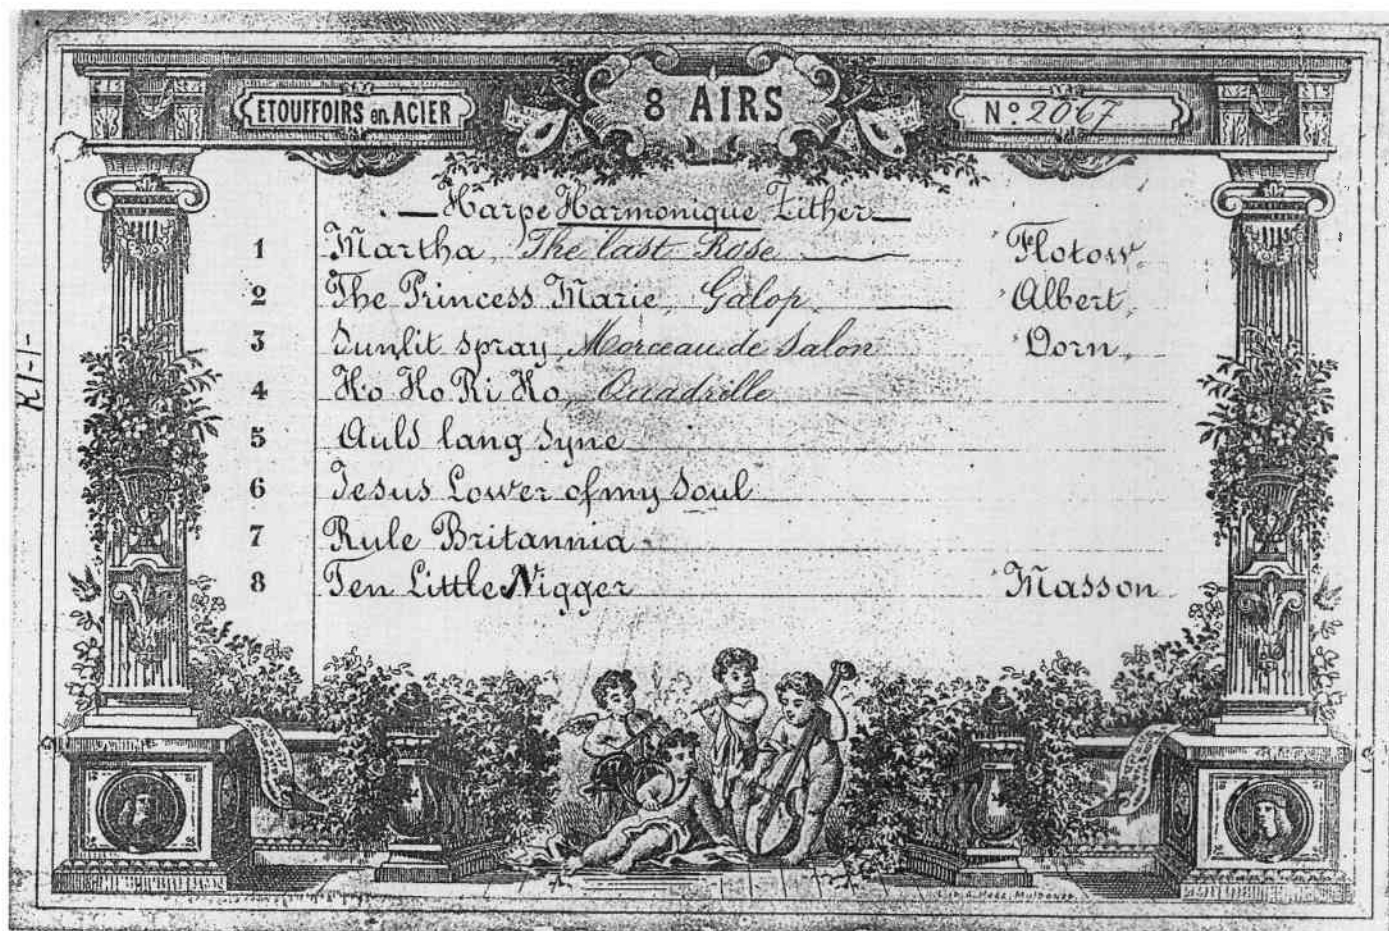 ETOUFFOIRS en ACIER
8 AIRS
Nº 2067
Harpe Harmonique Zither
1 Martha, The last Rose Flotow.
2 The Princess Marie, Galop. Albert,
3 Sunlit spray, Morceau de Salon Dorn,
4 Ho Ho Ri Ho, Quadrille
5 Auld lang Syne
6 Jesus Lower of my Soul
7 Rule Britannia
8 Ten Little Nigger Masson
R/-/-